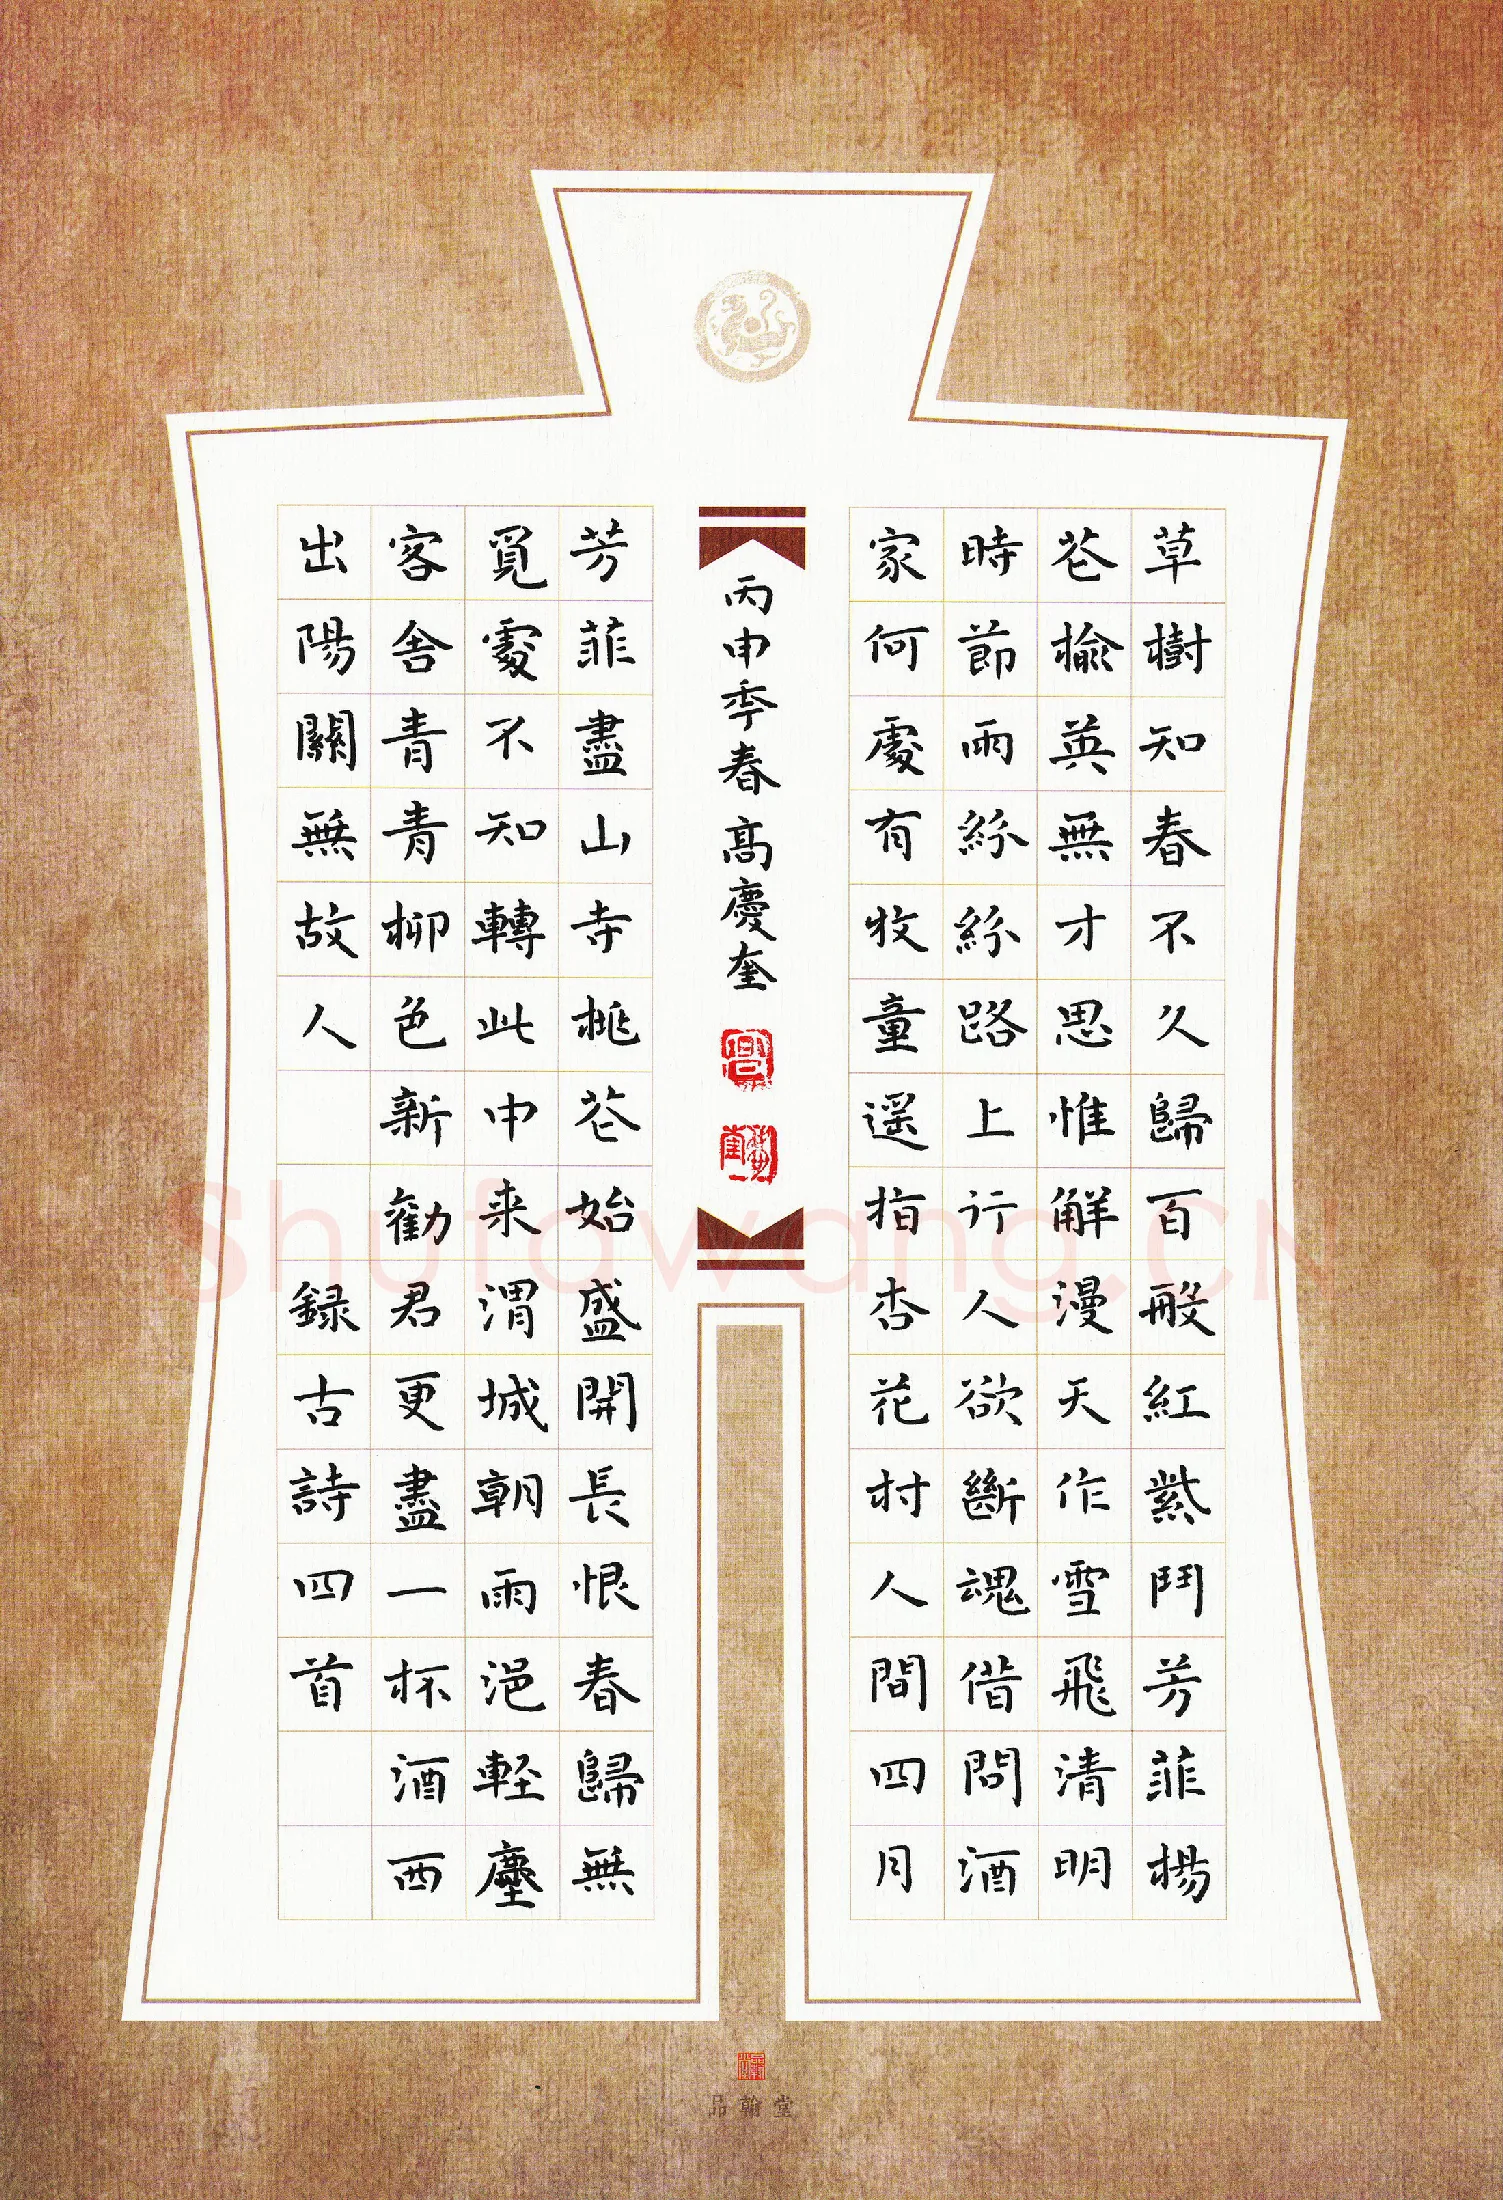 草樹知春不久歸百般紅紫鬥芳菲楊
花榆英無才思惟解漫天作雪飛清明
時節雨紛紛路上行人欲斷魂借問酒
家何處有牧童遥指杏花村人間四月
芳菲盡山寺桃花始盛開長恨春歸無
覓處不知轉此中来渭城朝雨浥軽塵
客舍青青柳色新勸君更盡一杯酒西
出陽關無故人 録古詩四首
丙申季春高慶奎
品翰堂
Shufawang.CN